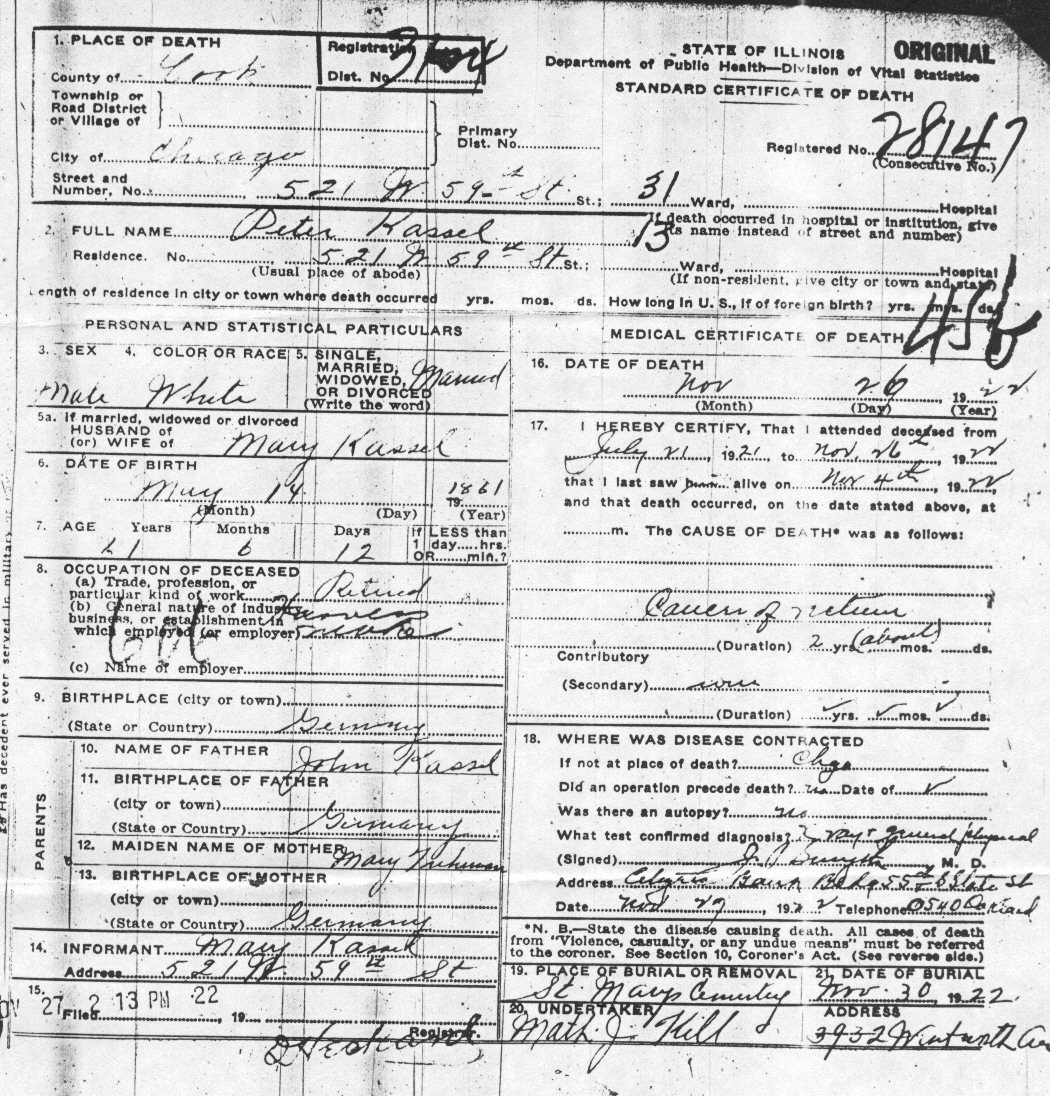 1. PLACE OF DEATH
County of Cook
Registration
Dist. No.
STATE OF ILLINOIS ORIGINAL
Department of Public Health—Division of Vital Statistics
STANDARD CERTIFICATE OF DEATH
Township or
Road District
or Village of
Primary
Dist. No.
Registered No. 28147
(Consecutive No.)
City of Chicago
Street and
Number, No. 521 W 59 St St.; 31 Ward, Hospital
If death occurred in hospital or institution, give
its name instead of street and number)
2. FULL NAME Peter Kassel 13
Residence. No. 521 W 59th St St.; Ward, Hospital
(Usual place of abode) (If non-resident, give city or town and state)
Length of residence in city or town where death occurred yrs. mos. ds. How long in U. S., if of foreign birth? yrs. mos. ds.
PERSONAL AND STATISTICAL PARTICULARS
3. SEX 4. COLOR OR RACE 5. SINGLE,
MARRIED,
WIDOWED,
OR DIVORCED
(Write the word)
Male White Married
5a. If married, widowed or divorced
HUSBAND of
(or) WIFE of Mary Kassel
6. DATE OF BIRTH
May 14 1861
19
(Month) (Day) (Year)
7. AGE Years Months Days If LESS than
1 day....hrs.
OR......min.?
61 6 12
8. OCCUPATION OF DECEASED
(a) Trade, profession, or
particular kind of work Retired
(b) General nature of industry
business, or establishment in
which employed (or employer) Harness
(c) Name of employer
9. BIRTHPLACE (city or town)
(State or Country) Germany
PARENTS
10. NAME OF FATHER John Kassel
11. BIRTHPLACE OF FATHER
(city or town)
(State or Country) Germany
12. MAIDEN NAME OF MOTHER Mary
13. BIRTHPLACE OF MOTHER
(city or town)
(State or Country) Germany
14. INFORMANT Mary Kassel
Address 521 W. 59th St
15.
NOV 27 2 13 PM '22
Filed , 19
Registrar.
Has decedent ever served in military
MEDICAL CERTIFICATE OF DEATH
16. DATE OF DEATH
Nov 26 1922
(Month) (Day) (Year)
17. I HEREBY CERTIFY, That I attended deceased from
July 21, 1921, to Nov. 26th, 1922
that I last saw him alive on Nov 4th, 1922,
and that death occurred, on the date stated above, at
m. The CAUSE OF DEATH* was as follows:
Cancer of rectum
(Duration) 2 yrs (about) mos. ds.
Contributory
(Secondary) none
(Duration) yrs. mos. ds.
18. WHERE WAS DISEASE CONTRACTED
If not at place of death? Chgo
Did an operation precede death? no Date of
Was there an autopsy? no
What test confirmed diagnosis? X ray & general physical
(Signed) M. D.
Address Citizens Bank Bldg 55th & State St
Date Nov 27, 1922 Telephone 0540
*N. B.—State the disease causing death. All cases of death
from "Violence, casualty, or any undue means" must be referred
to the coroner. See Section 10, Coroner's Act. (See reverse side.)
19. PLACE OF BURIAL OR REMOVAL 21. DATE OF BURIAL
St. Marys Cemetery Nov. 30, 1922.
20. UNDERTAKER ADDRESS
Math J. Hill 3932 Wentworth Ave